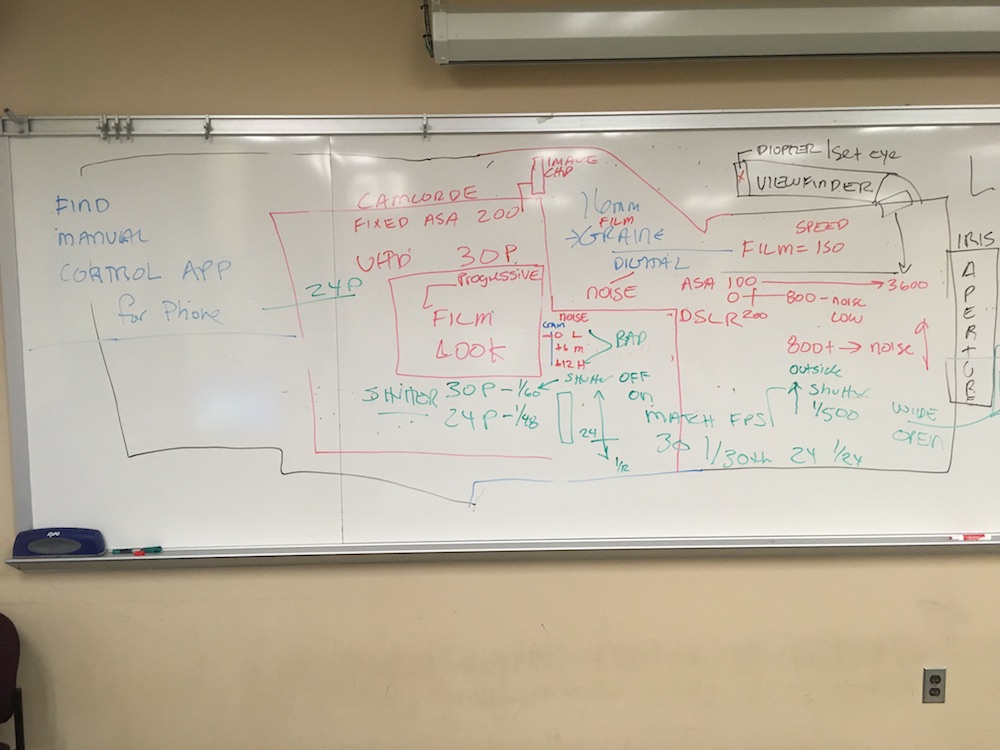 FIND
MANUAL
CONTROL APP
for Phone
24P
CAMCORDE
FIXED ASA 200
IMAGE
CHIP
30P
PROGRESSIVE
FILM
LOOK
16mm
FILM
GRAINE
DIGITAL
NOISE
NOISE
GAIN
0 L
+6 M
+12 H
BAD
SHUTTER 30P - 1/60
24P - 1/48
SHUTTER OFF
ON
24
1/2
DIOPTER / Set eye
X
VIEWFINDER
SPEED
FILM = 150
ASA 100 → 3600
0 800 - noise
LOW
DSLR 200
800+ → noise
outside
Shutter
1/500
MATCH FPS
30 1/30th 24 1/24
WIDE
OPEN
IRIS
APERTURE
L
expo